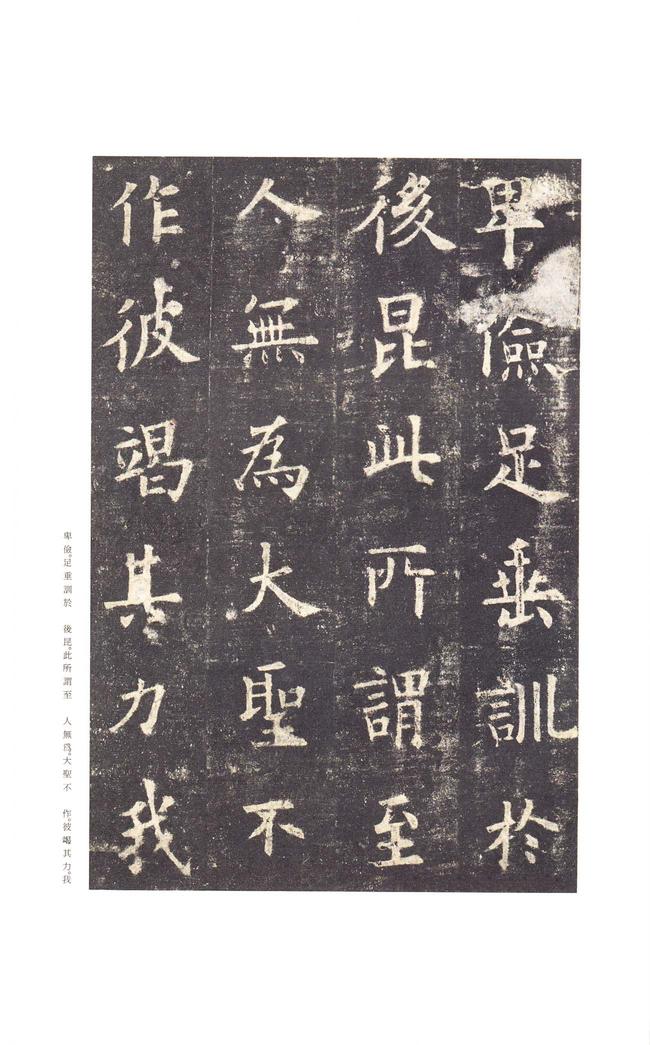 卑儉足垂訓於
後昆此所謂至
人無為大聖不
作彼竭其力我
卑儉。足重訓於　後昆。此所謂至　人無爲。大聖不　作。彼竭其力。我